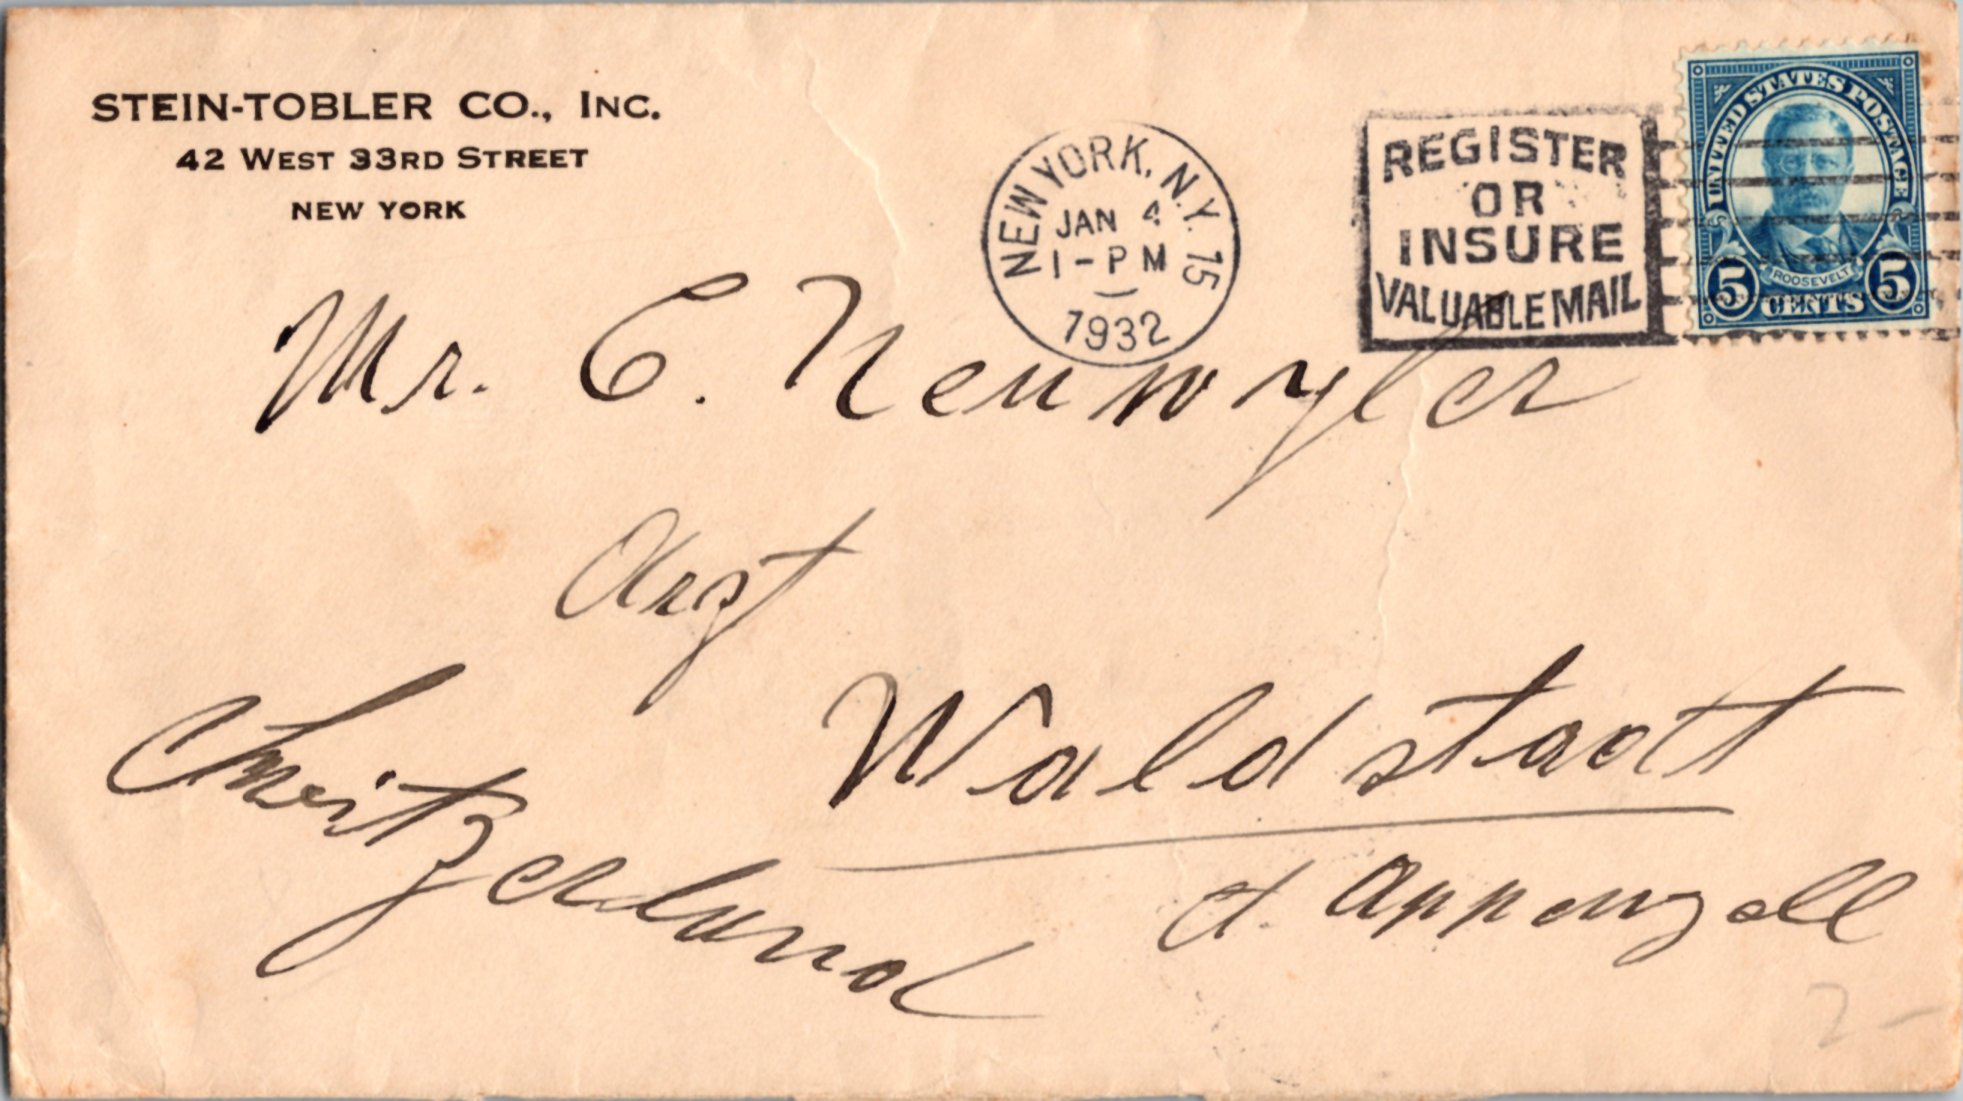 STEIN-TOBLER CO., INC.
42 WEST 33RD STREET
NEW YORK
NEW YORK, N.Y. 15
JAN 4
1-PM
1932
REGISTER
OR
INSURE
VALUABLE MAIL
UNITED STATES POSTAGE
ROOSEVELT
5 CENTS 5
Mr. C. Neuwyler
Arzt
Waldstatt
Switzerland
Ct. Appenzell
2-